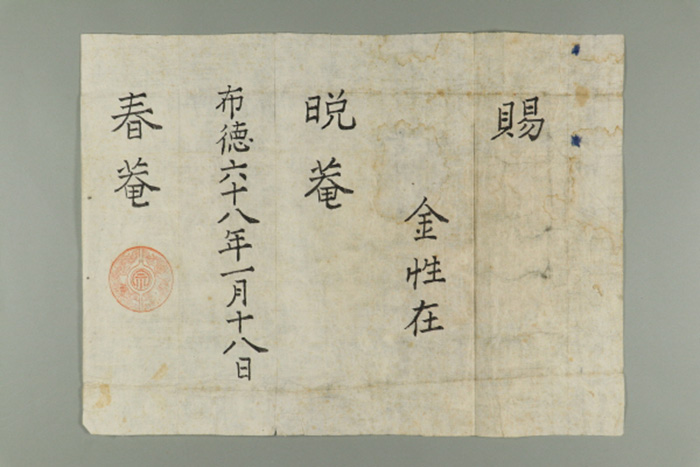 賜
金性在
晩菴
布德六十八年一月十八日
春菴